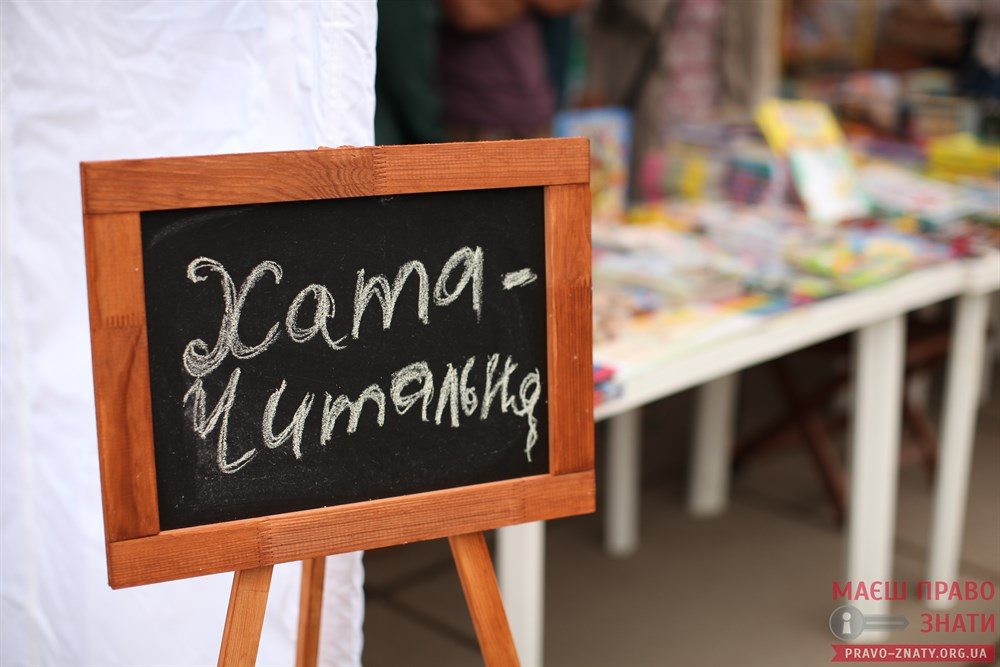 Хата -
Читальня
МАЄШ ПРАВО
ЗНАТИ
PRAVO-ZNATY.ORG.UA